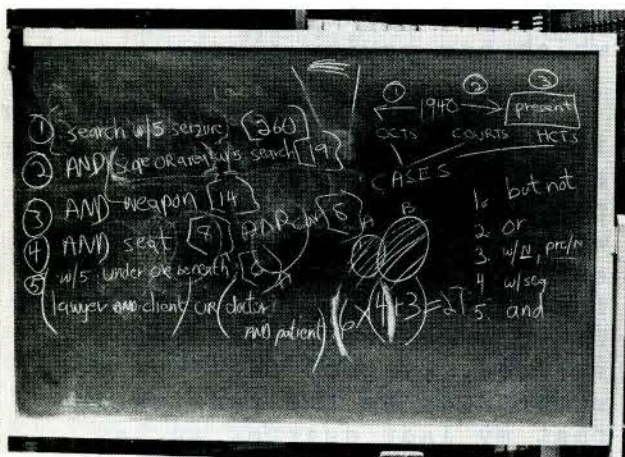 ① search w/5 seizure [260]
② AND (scope OR area) w/5 search [19]
③ AND weapon [14]
④ AND seat [8]
⑤ w/5 under OR beneath
(lawyer AND client) OR (doctor
AND patient)
(6 × (4+3) = 27
A B
① ② ③
1940 present
OCTS COURTS HCTS
CASES
1. but not
2. or
3. w/N, pre/N
4 w/seg
5. and